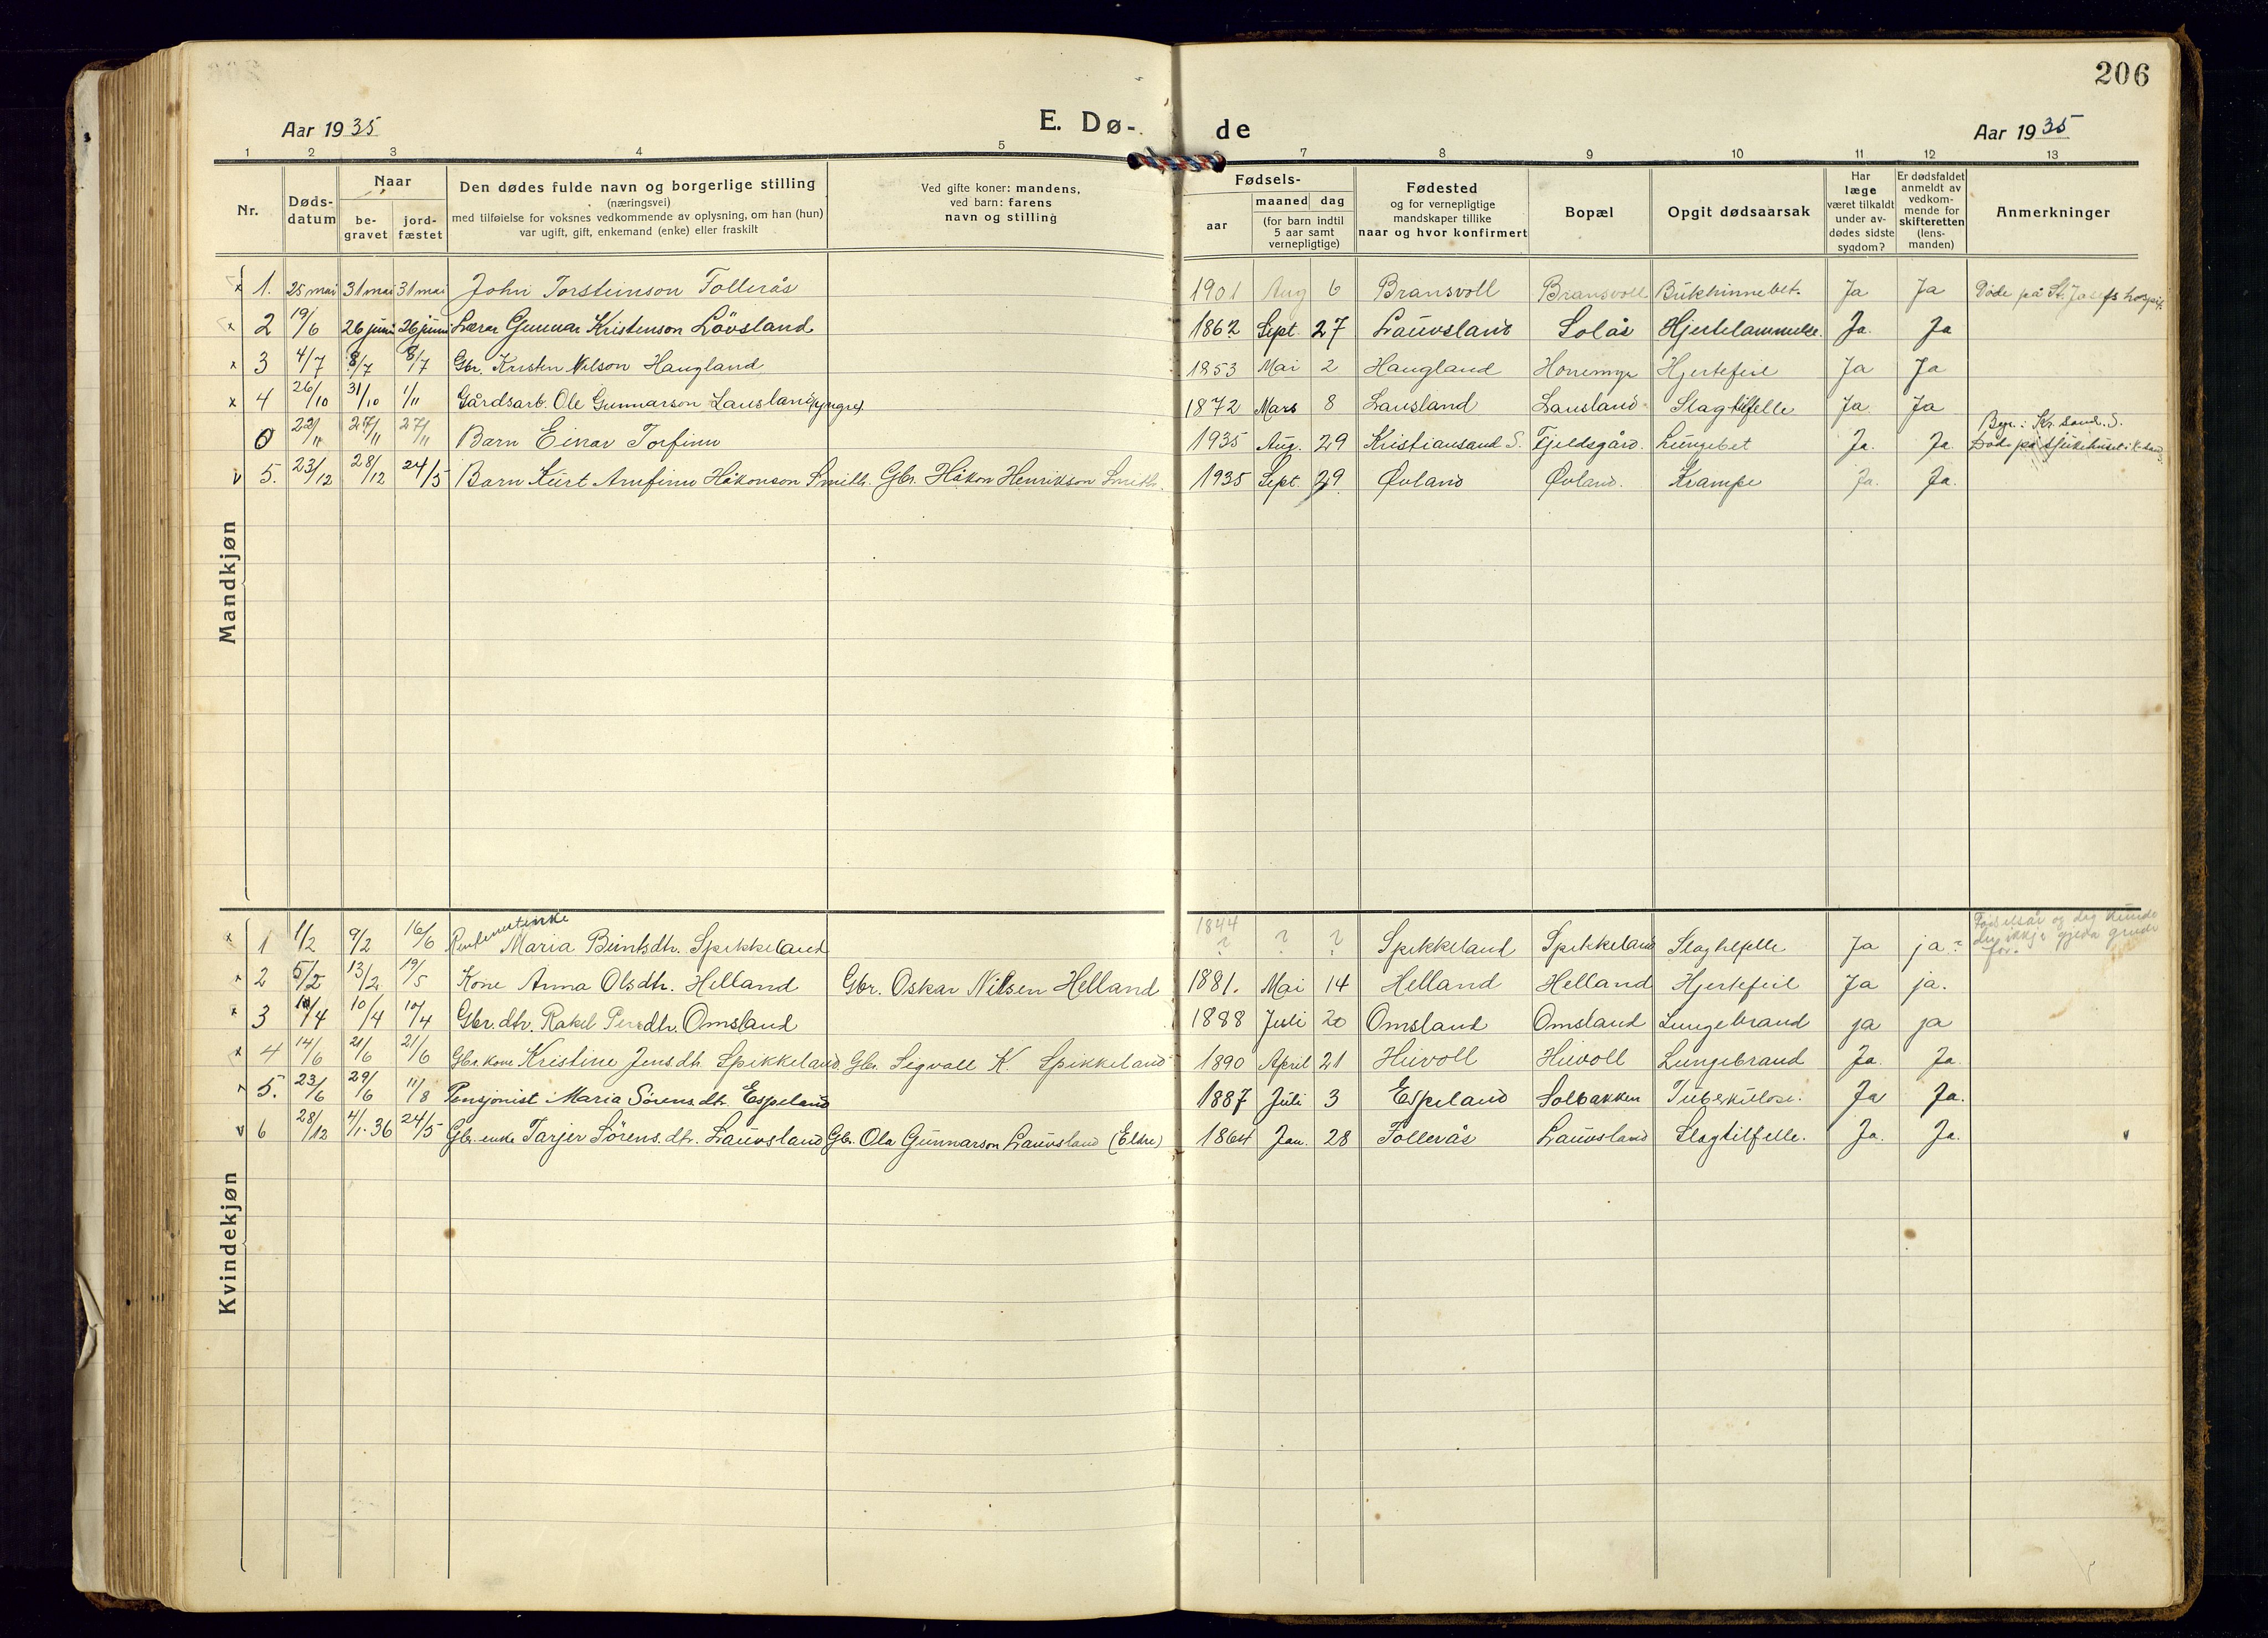 206
Aar 1935 E. Dø- de Aar 1935
1 2 3 4 5 6 7 8 9 10 11 12 13
Nr.
Døds-
datum
Naar
be-
gravet
jord-
fæstet
Den dødes fulde navn og borgerlige stilling
(næringsvei)
med tilføielse for voksnes vedkommende av oplysning, om han (hun)
var ugift, gift, enkemand (enke) eller fraskilt
Ved gifte koner: mandens,
ved barn: farens
navn og stilling
Fødsels-
aar
maaned dag
(for barn indtil
5 aar samt
vernepligtige)
Fødested
og for vernepligtige
mandskaper tillike
naar og hvor konfirmert
Bopæl
Opgit dødsaarsak
Har
læge
været tilkaldt
under av-
dødes sidste
sygdom?
Er dødsfaldet
anmeldt av
vedkom-
mende for
skifteretten
(lens-
manden)
Anmerkninger
Mandkjøn
x 1. 25 mai 31 mai 31 mai John Torsteinson Tollerås 1901 Aug 6 Bransvoll Bransvoll Bukhinnebet. Ja Ja Døde på St. Josefs hospit.
x 2 19/6 26 juni 26 juni Lærar Gunnar Kristenson Lövsland 1862 Sept. 27 Lauvsland Solås Hjertelammelse. Ja. Ja
x 3 4/7 8/7 8/7 Gbr. Kristen Nilson Haugland 1853 Mai 2 Haugland Honnemyr Hjertefeil Ja Ja
x 4 26/10 31/10 1/11 Gårdsarb. Ole Gunnarson Lausland (yngre) 1872 Mars 8 Lausland Lausland Slagtilfelle Ja. Ja
0 22/11 27/11 27/11 Barn Einar Torfinn 1935 Aug. 29 Kristiansand S. Fjeldsgård. Lungebet Ja. Ja. Begr. i Kr.sand. S.
Død på sjukehuset i K.sand.
v 5. 23/12 28/12 24/5 Barn Kurt Arnfinn Håkonson Smith. Gbr. Håkon Henrikson Smith. 1935 Sept. 29 Øvland Øvland. Krampe Ja. Ja.
Kvindekjøn
x 1 1/2 9/2 16/6 Maria Bentsdtr. Spikkeland 1844 ? ? ? Spikkeland Spikkeland Slagtilfelle Ja ja? Fødselsår og dag kunde
dei ikkje gjeda greide
for.
x 2 5/2 13/2 19/5 Kone Anna Olsdtr. Helland Gbr. Oskar Nilsen Helland 1881. Mai 14 Helland Helland Hjertefeil Ja ja.
x 3 /4 10/4 10/4 Gbr. dtr. Rakel Persdtr. Omsland 1888 Juli 20 Omsland Omsland Lungebrand ja ja
x 4 14/6 21/6 21/6 Gbr. kone Kristine Jensdtr. Spikkeland. Gbr. Sigvall K. Spikkeland 1890 April 21 Huvoll Huvoll Lungebrand Ja. Ja.
5. 23/6 29/6 11/8 Pensjonist Maria Sörens.dtr. Espeland 1887 Juli 3 Espeland Solbakken Tuberkulose. Ja Ja.
v 6 28/12 4/1. 36 24/5 Gbr. enke Tarjer Sörens.dtr. Lauvsland Gbr. Ola Gunnarson Lauvsland (Eldre) 1864 Jan. 28 Tollerås Lauvsland Slagtilfelle. Ja. Ja.